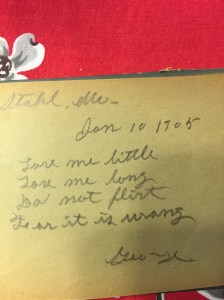 Stahl, Mo-
Jan 10 1905
Love me little
Love me long
Do not flirt
For it is wrang
George